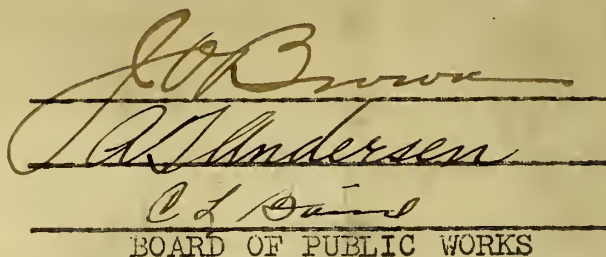 J O Brown
Andersen
C L
BOARD OF PUBLIC WORKS